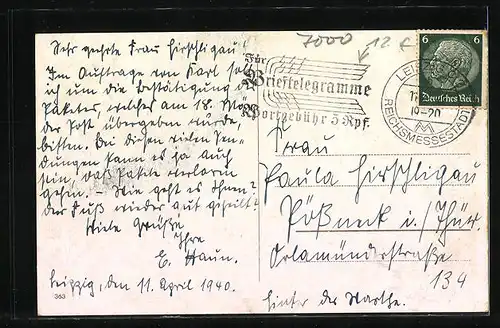 Sehr geehrte Frau Hirschligau!
Im Auftrage von Karl soll
ich um die Bestätigung des
Paketes, welches am 18. März
der Post übergeben wurde,
bitten. Bei diesen vielen Sen-
dungen kann es ja auch
sein, daß Pakete verloren
gehn. – Wie geht es Ihnen?
der Fuß wieder gut geheilt?
Viele Grüße
Ihre
E. Haun.
Leipzig, den 11. April 1940.
363
7000
12 €
Für
Brieftelegramme
Wortgebühr 5 Rpf.
6 6
Deutsches Reich
REICHSMESSESTADT
19-20
Frau
Paula Hirschligau
Pößneck i./Thür.
Orlamünderstraße
134
hinter der Warthe.